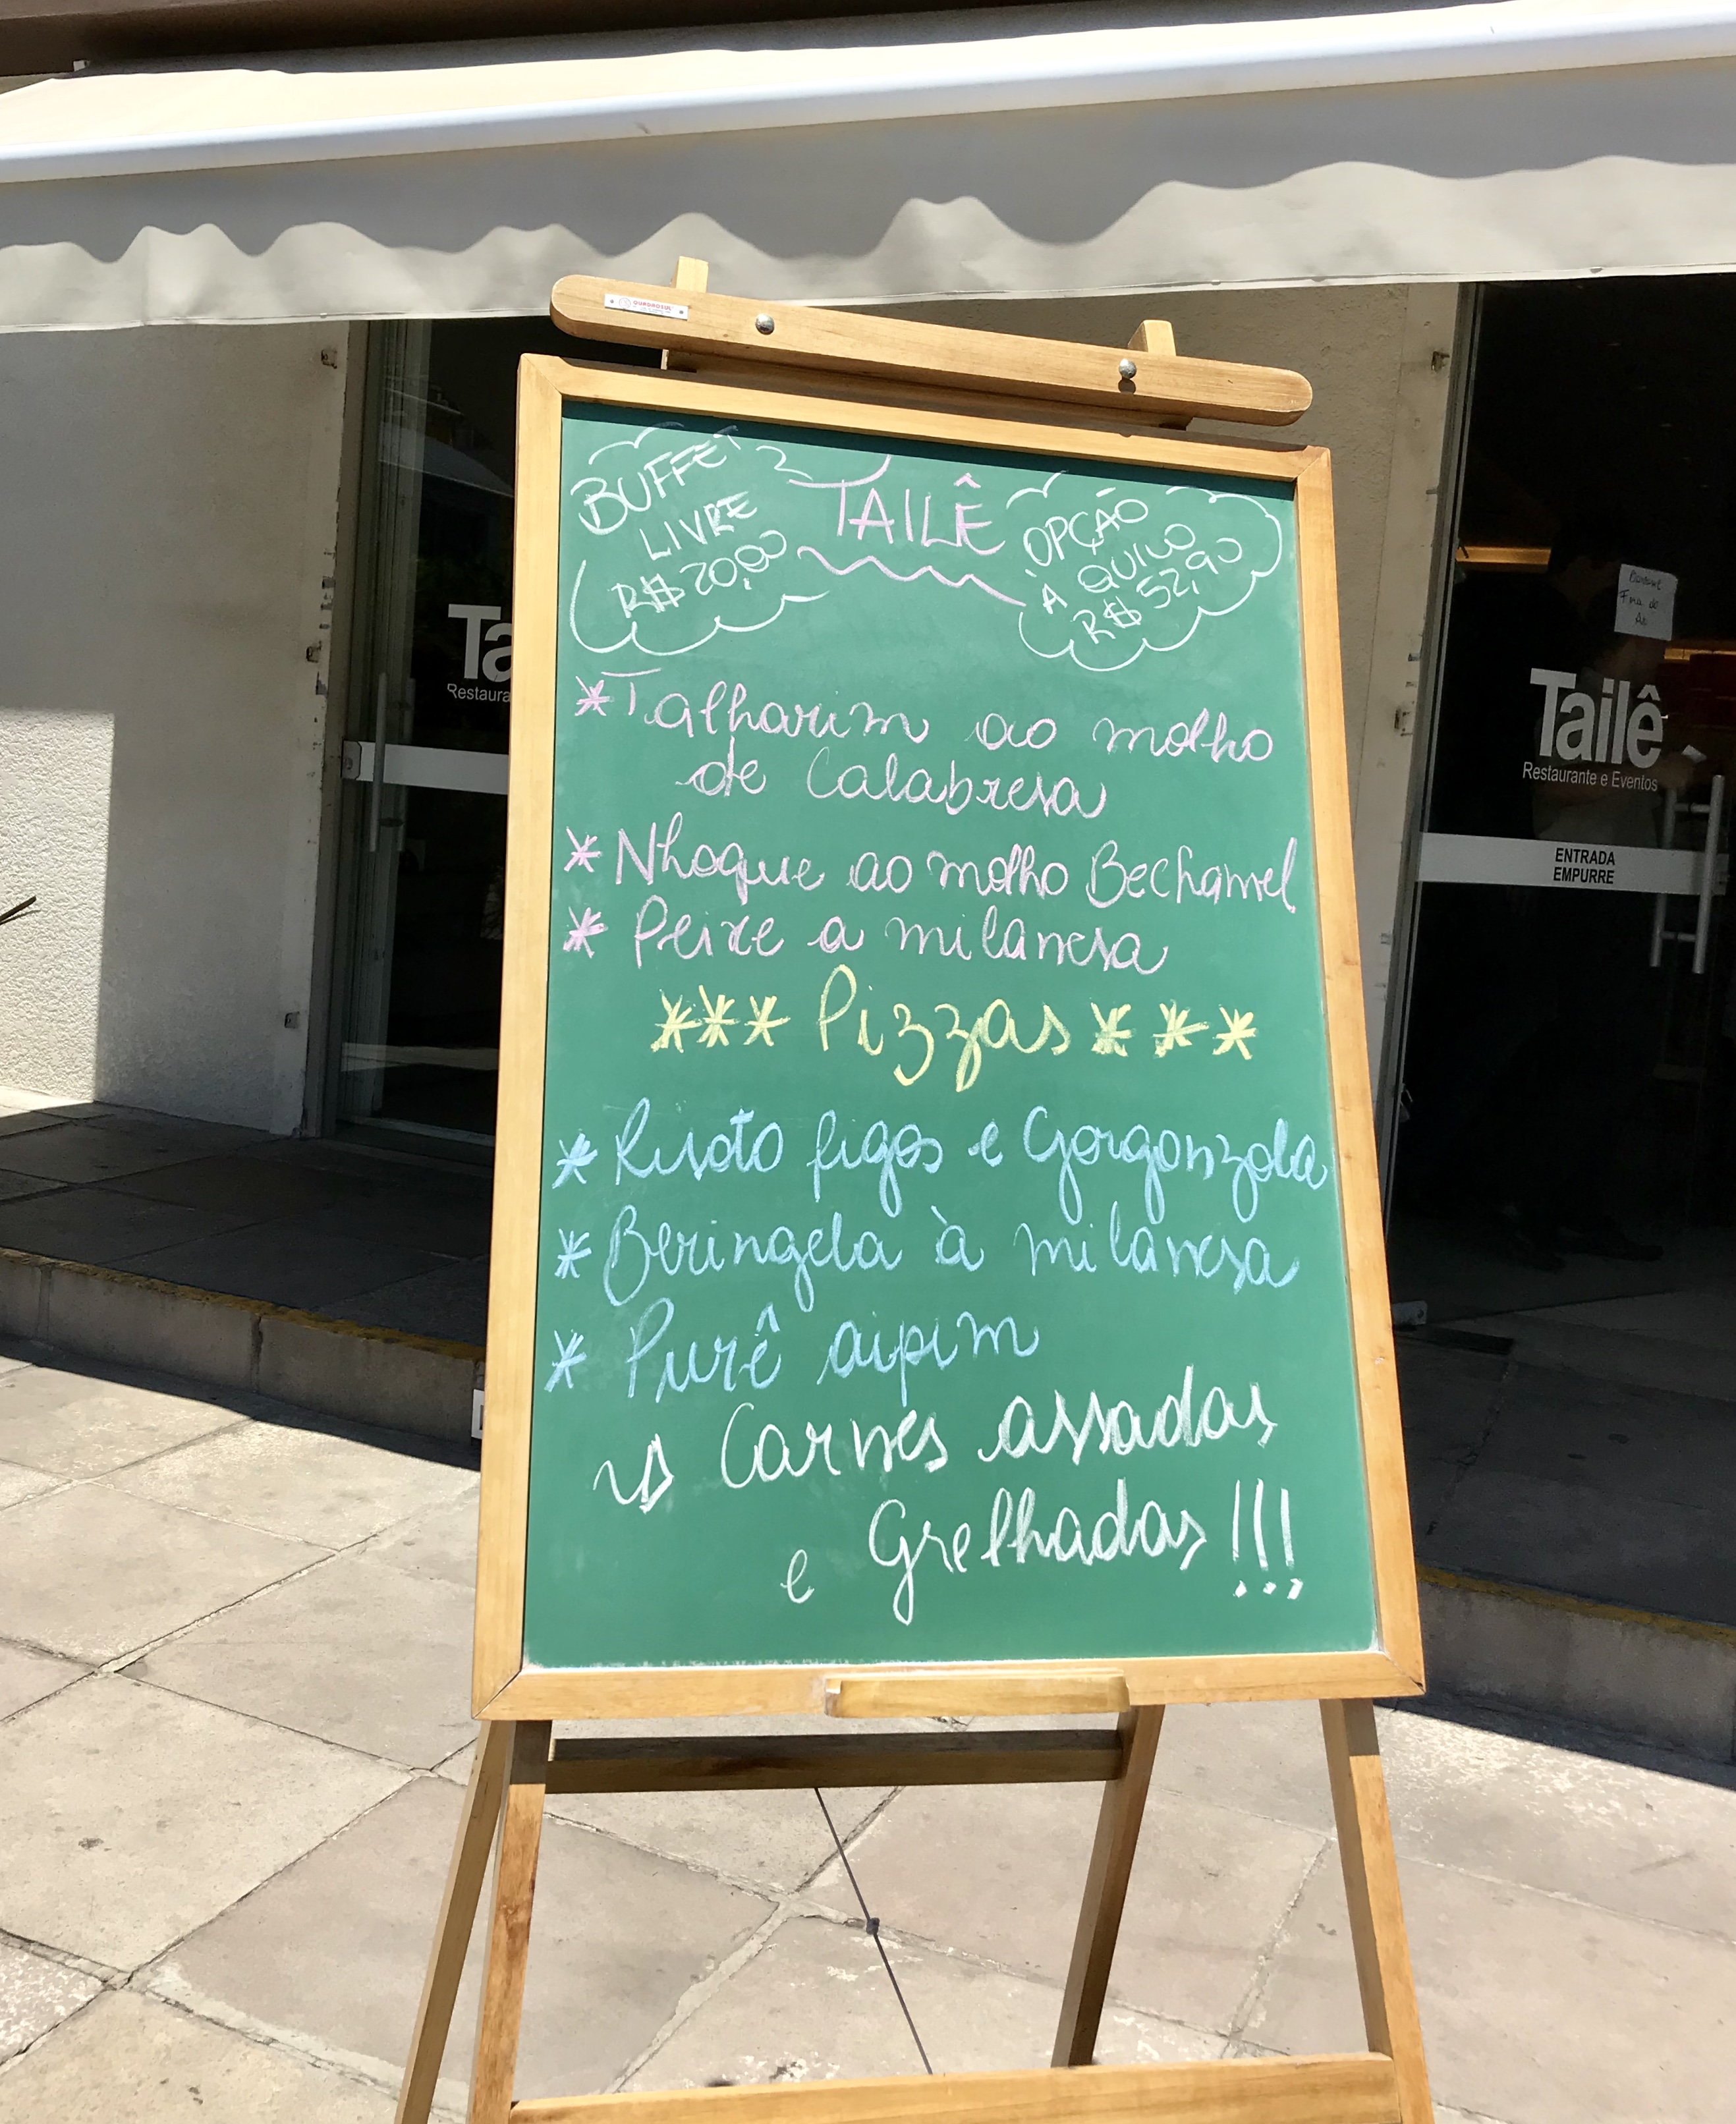 QUADROSUL
BUFFET
LIVRE
R$ 20,00
TAILÊ
OPÇÃO
À QUILO
R$ 52,90
*Talharim ao molho
de Calabresa
* Nhoque ao molho Bechamel
* Peixe a milanesa
*** Pizzas ***
* Risoto figos e Gorgonzola
* Beringela à milanesa
* Purê aipim
Carnes assadas
e Grelhadas!!!
Ta
Restaura
Tailê
Restaurante e Eventos
ENTRADA
EMPURRE